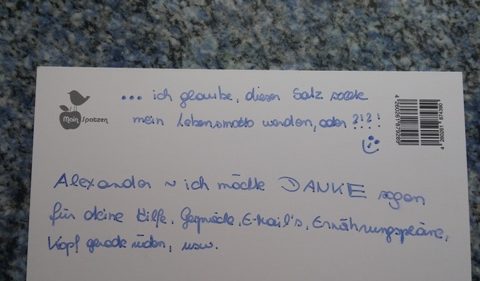 ... ich glaube, dieser Satz sollte
mein Lebensmotto werden, oder ?!?!
Mein Spatzen
Alexander ~ ich möchte DANKE sagen
für deine Hilfe, Gespräche, E-Mail's, Ernährungspläne,
Kopf gerade rücken, usw.